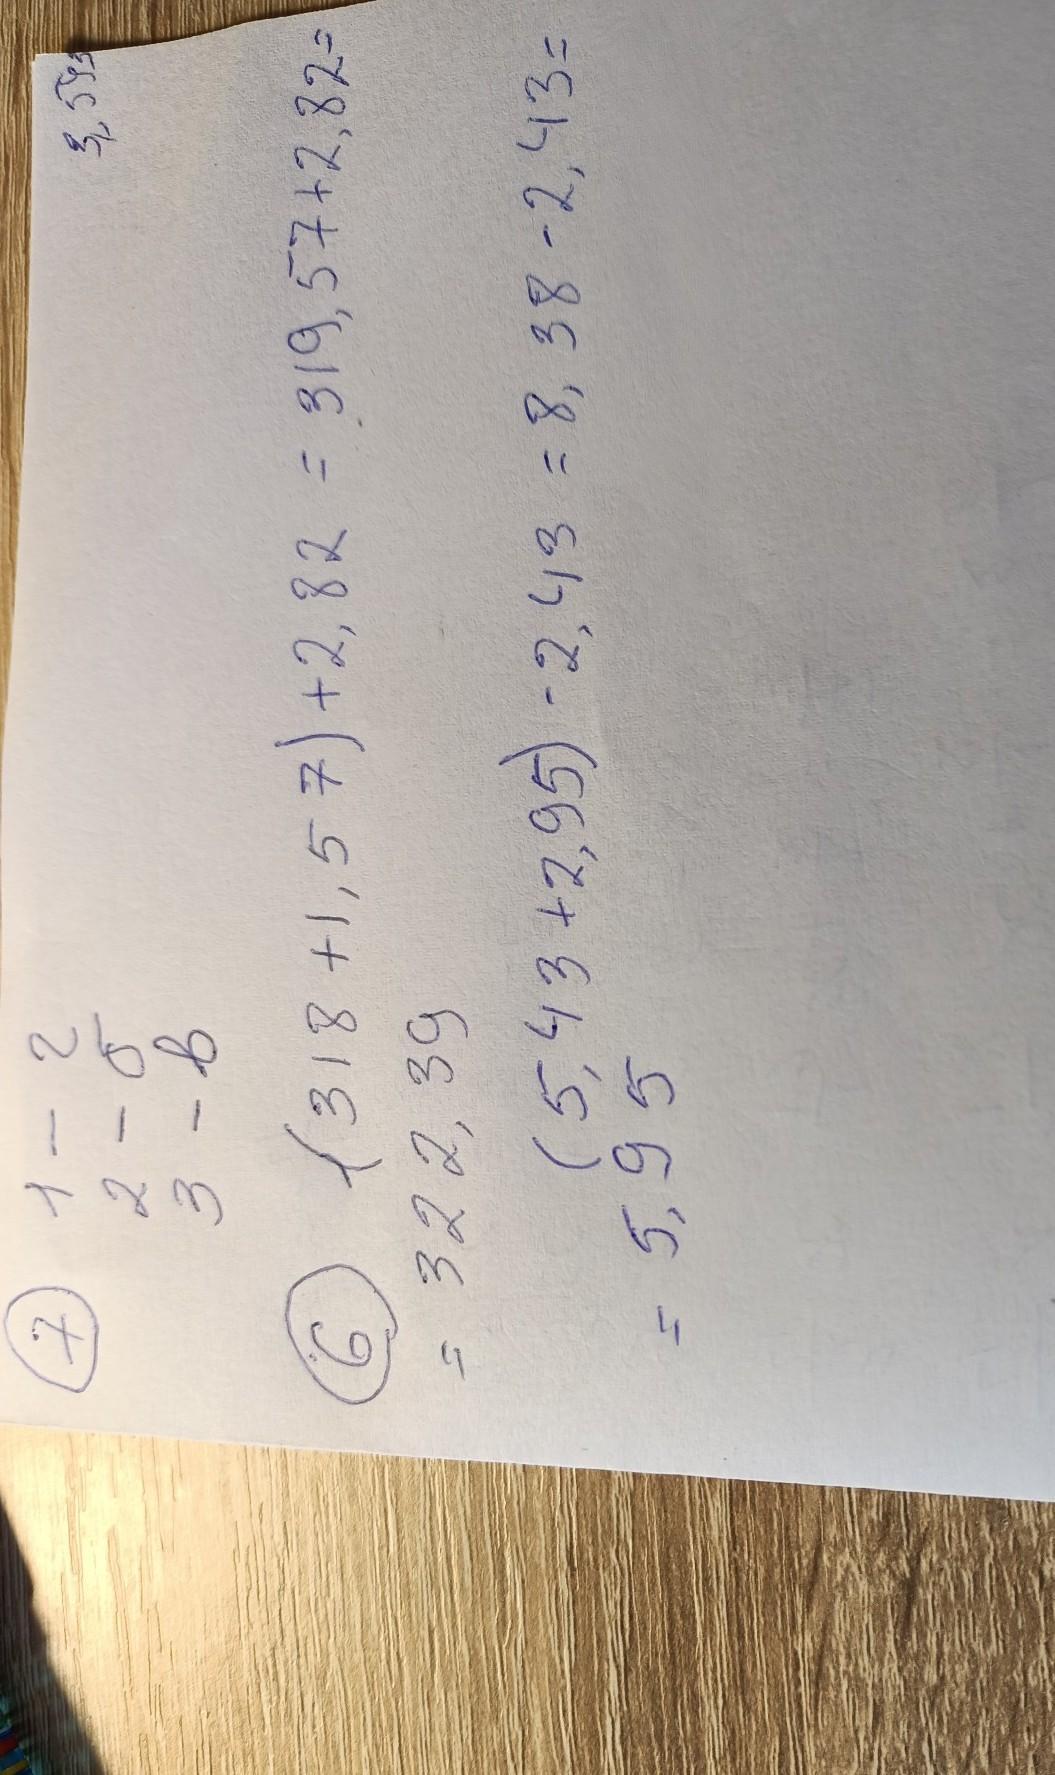 ⑦ 1 - г
2 - б
3 - в
⑥ (318 + 1,57) + 2,82 = 319,57 + 2,82 =
= 322,39
(5,43 + 2,95) - 2,43 = 8,38 - 2,43 =
= 5,95